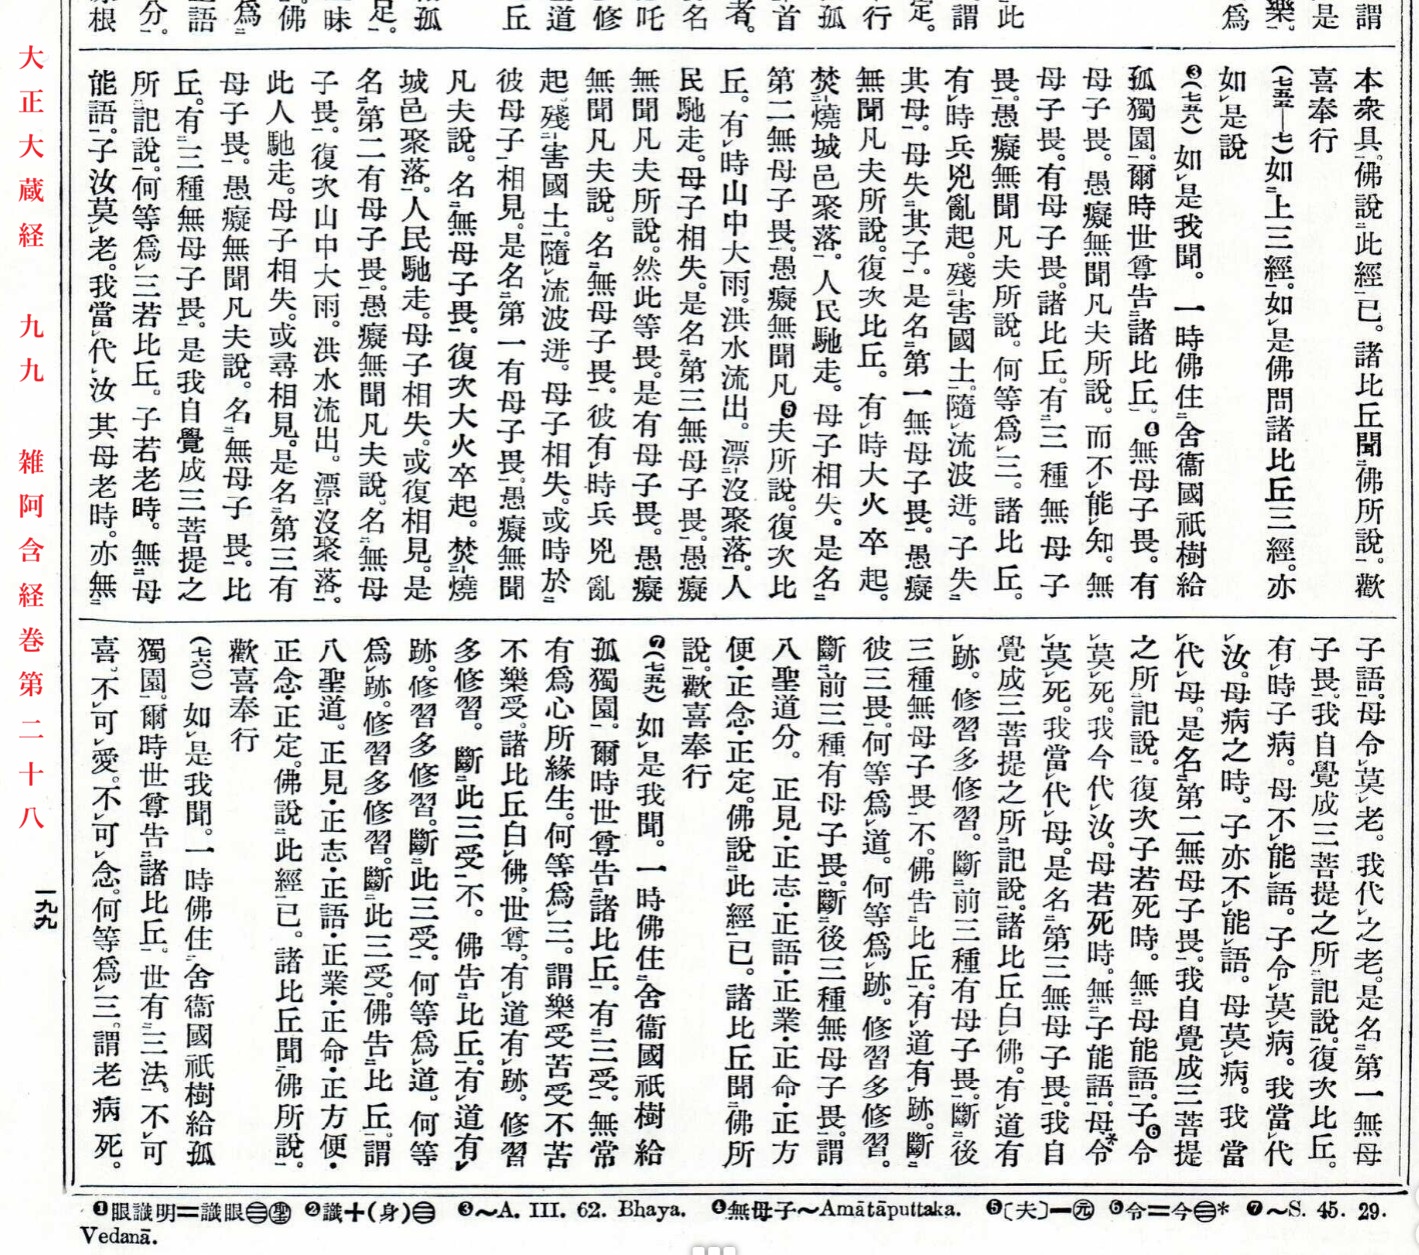 謂
是
樂。
爲
此
謂
定。
行
孤
首
者。
名
吒
修
道
丘
孤
足。
昧
佛
爲
語
分。
根
本衆具。佛說此經已。諸比丘聞佛所說。歡
喜奉行
(七五五—七)如上三經。如是佛問諸比丘三經。亦
如是說
❸(七五八)如是我聞。一時佛住舍衞國祇樹給
孤獨園。爾時世尊告諸比丘。❹無母子畏。有
母子畏。愚癡無聞凡夫所說。而不能知。無
母子畏。有母子畏。諸比丘。有三種無母子
畏。愚癡無聞凡夫所說。何等爲三。諸比丘。
有時兵兇亂起。殘害國土。隨流波迸。子失
其母。母失其子。是名第一無母子畏。愚癡
無聞凡夫所說。復次比丘。有時大火卒起。
焚燒城邑聚落。人民馳走。母子相失。是名
第二無母子畏。愚癡無聞凡❺夫所說。復次比
丘。有時山中大雨。洪水流出。漂沒聚落。人
民馳走。母子相失。是名第三無母子畏。愚癡
無聞凡夫所說。然此等畏。是有母子畏。愚癡
無聞凡夫說。名無母子畏。彼有時兵兇亂
起。殘害國土。隨流波迸。母子相失。或時於
彼母子相見。是名第一有母子畏。愚癡無聞
凡夫說。名無母子畏。復次大火卒起。焚燒
城邑聚落。人民馳走。母子相失。或復相見。是
名第二有母子畏。愚癡無聞凡夫說。名無母
子畏。復次山中大雨。洪水流出。漂沒聚落。
此人馳走。母子相失。或尋相見。是名第三有
母子畏。愚癡無聞凡夫說。名無母子畏。比
丘。有三種無母子畏。是我自覺成三菩提之
所記說。何等爲三若比丘。子若老時。無母
能語。子汝莫老。我當代汝其母老時。亦無
子語。母令莫老。我代之老。是名第一無母
子畏。我自覺成三菩提之所記說。復次比丘。
有時子病。母不能語。子令莫病。我當代
汝。母病之時。子亦不能語。母莫病。我當
代母。是名第二無母子畏。我自覺成三菩提
之所記說。復次子若死時。無母能語。子❻令
莫死。我今代汝。母若死時。無子能語。母*令
莫死。我當代母。是名第三無母子畏。我自
覺成三菩提之所記說。諸比丘白佛。有道有
跡。修習多修習。斷前三種有母子畏。斷後
三種無母子畏不。佛告比丘。有道有跡。斷
彼三畏。何等爲道。何等爲跡。修習多修習。
斷前三種有母子畏。斷後三種無母子畏。謂
八聖道分。正見・正志・正語・正業・正命・正方
便・正念・正定。佛說此經已。諸比丘聞佛所
說。歡喜奉行
❼(七五九)如是我聞。一時佛住舍衞國祇樹給
孤獨園。爾時世尊告諸比丘。有三受。無常
有爲心所緣生。何等爲三。謂樂受苦受不苦
不樂受。諸比丘白佛。世尊。有道有跡。修習
多修習。斷此三受不。佛告比丘。有道有
跡。修習多修習。斷此三受。何等爲道。何等
爲跡。修習多修習。斷此三受。佛告比丘。謂
八聖道。正見・正志・正語・正業・正命・正方便・
正念・正定。佛說此經已。諸比丘聞佛所說。
歡喜奉行
(七六〇)如是我聞。一時佛住舍衞國祇樹給孤
獨園。爾時世尊告諸比丘。世有三法。不可
喜。不可愛。不可念。何等爲三。謂老病死。
❶眼識明＝識眼㊂聖 ❷識＋(身)㊂ ❸～A. III. 62. Bhaya. ❹無母子～Amātāputtaka. ❺〔夫〕－元 ❻令＝今㊂* ❼～S. 45. 29.
Vedanā.
大正大蔵経 九九 雑阿含経巻第二十八
一九九